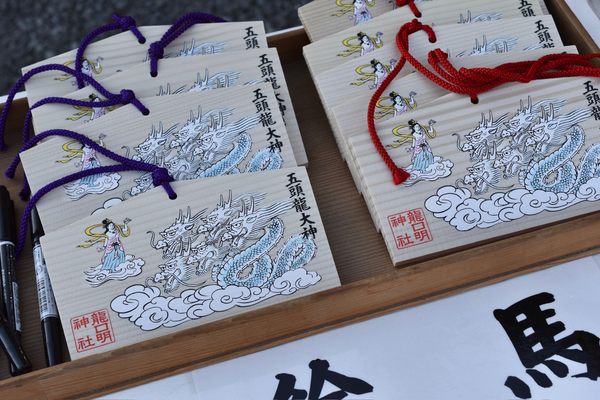 五頭
五頭龍
五頭龍大神
五頭龍大神
龍口明
神社
五
五頭
五頭龍大神
龍口明
神社
絵馬